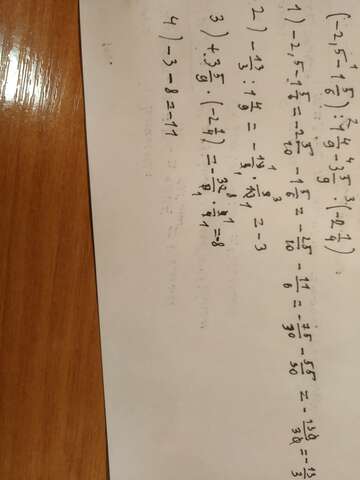 (-2,5-1 5/6):1 4/9-3 5/9·(-2 1/4)
1) -2,5-1 5/6=-2 5/10-1 5/6=-25/10-11/6=-75/30-55/30=-130/30=-13/3
2) -13/3:1 4/9=-13/3·9/13=-3
3) +3 5/9·(-2 1/4)=-32/9·9/4=-8
4) -3-8=-11